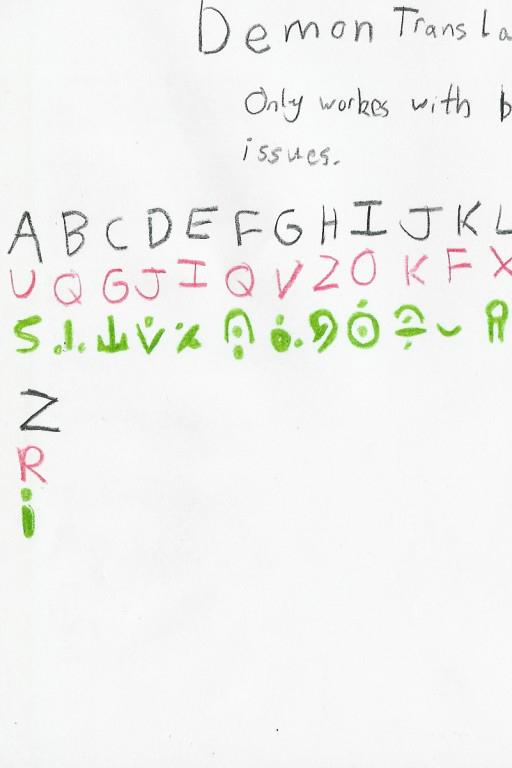 Demon Transla
Only workes with b
issues.
A B C D E F G H I J K L
U Q G J I Q V Z O K F X
Z
R